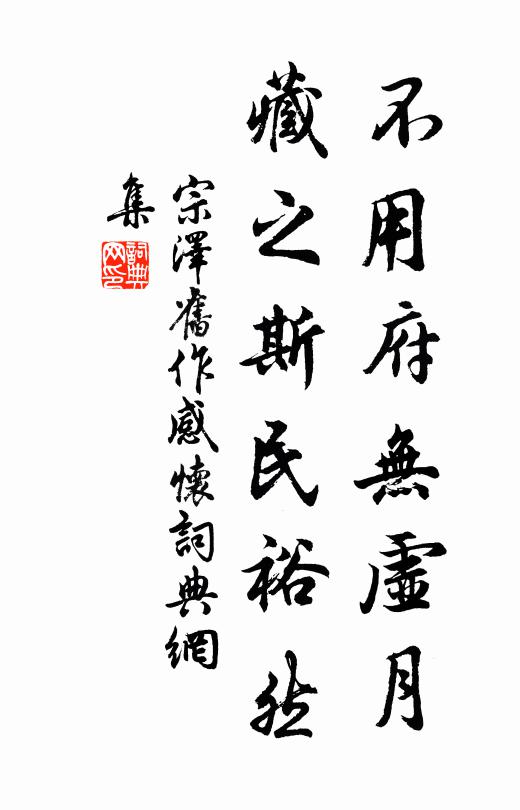 不用府無虛月
藏之斯民裕然
宗澤舊作感懷詞典網
集
詞典
网印